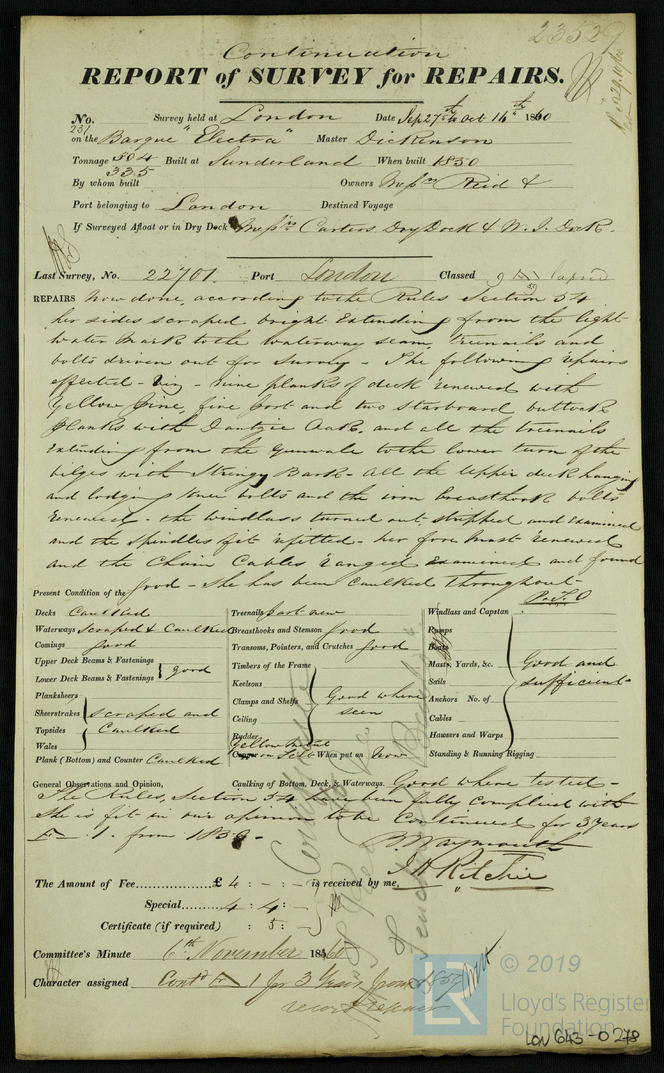 23529
Continuation
REPORT of SURVEY for REPAIRS.
No. Survey held at London Date Sep 27th to Oct 16th 1860
231
on the Barque "Electra" Master Dickinson
Tonnage 304 Built at Sunderland When built 1850
335
By whom built Owners Messrs Reid &
Port belonging to London Destined Voyage
If Surveyed Afloat or in Dry Dock Messrs Carters Dry Dock & W. I. Dock.
Last Survey, No. 22701. Port London Classed 9 A1 lapsed
59
REPAIRS now done, according to the Rules Section 54
her sides scraped bright Extending from the light
water mark to the waterway seam, treenails and
bolts driven out for survey - The following repairs
effected - viz - nine planks of deck renewed with
Yellow Pine, five port and two starboard buttock
planks with Dantzic Oak. and all the treenails
extending from the gunwale to the lower turn of the
bilges with Stringy Bark - all the upper deck hanging
and lodging knee bolts and the iron breasthook bolts
renewed - the windlass turned out stripped and examined
and the spindles refitted - her fore mast renewed
and the Chain Cables ranged examined and found
good - She has been caulked throughout -
P.T.O
Present Condition of the
Decks Caulked
Waterways Scraped & Caulked
Comings good
Upper Deck Beams & Fastenings
Lower Deck Beams & Fastenings } good
Planksheers
Sheerstrakes
Topsides
Wales } scraped and Caulked
Plank (Bottom) and Counter Caulked
Treenails part new
Breasthooks and Stemson good
Transoms, Pointers, and Crutches good
Timbers of the Frame
Keelsons
Clamps and Shelfs
Ceiling
Rudder } Good where seen
Yellow Metal
Copper on Felt When put on Now
Windlass and Capstan
Pumps
Boats
Masts, Yards, &c.
Sails
Anchors No. of
Cables
Hawsers and Warps } Good and sufficient
Standing & Running Rigging
General Observations and Opinion, Caulking of Bottom, Deck, & Waterways. Good where tested -
The Rules, Section 54 have been fully complied with
She is fit in our opinion to be Continued for 3 Years
1. from 1859 -
P. Waymouth
J H Ritchie
The Amount of Fee £ 4 : - : - is received by me,
Special 4 : 4 : -
Certificate (if required) : 5 : -
Committee's Minute 6th November 1860
Character assigned Contd A 1 for 3 Years from 1859
record repairs
© 2019
LR
Lloyd's Register
Foundation
LON 643-0278